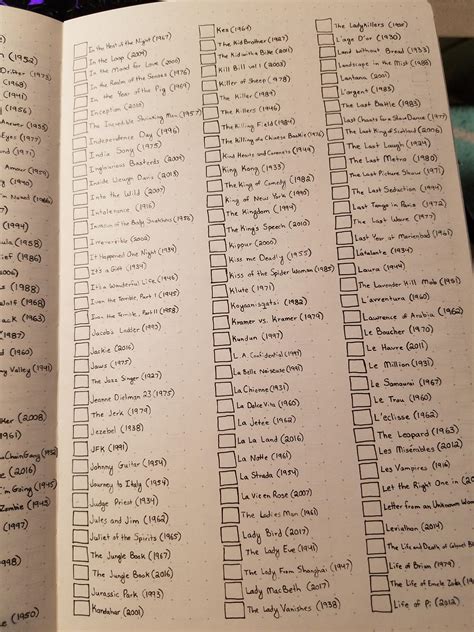 (1952)
Drifter (1973)
(1968)
(1941)
(1956)
(1973)
(1971)
(1940)
(1994)
(1958)
(1986)
(1985)
(1968)
(1963)
(1960)
Valley (1941)
(2008)
1961)
(1932)
(2016)
I'm Going (1945)
Zombie (1943)
(1997)
(1950)
In the Heat of the Night (1967)
In the Loop (2009)
In the Mood for Love (2000)
In the Realm of the Senses (1976)
In the Year of the Pig (1969)
Inception (2010)
The Incredible Shrinking Man (1957)
Independence Day (1996)
India Song (1975)
Inglourious Basterds (2009)
Inside Llewyn Davis (2013)
Into the Wild (2007)
Intolerance (1916)
Invasion of the Body Snatchers (1956)
Irreversible (2002)
It Happened One Night (1934)
It's a Gift (1934)
It's a Wonderful Life (1946)
Ivan the Terrible, Part I (1945)
Ivan the Terrible, Part II (1958)
Jacob's Ladder (1990)
Jackie (2016)
Jaws (1975)
The Jazz Singer (1927)
Jeanne Dielman 23 (1975)
The Jerk (1979)
Jezebel (1938)
JFK (1991)
Johnny Guitar (1954)
Journey to Italy (1954)
Judge Priest (1934)
Jules and Jim (1962)
Juliet of the Spirits (1965)
The Jungle Book (1967)
The Jungle Book (2016)
Jurassic Park (1993)
Kandahar (2001)
Kes (1969)
The Kid Brother (1927)
The Kid with the Bike (2011)
Kill Bill vol 1 (2003)
Killer of Sheep (1978)
The Killer (1989)
The Killers (1946)
The Killing Field (1984)
The Killing of a Chinese Bookie (1976)
Kind Hearts and Coronets (1949)
King Kong (1933)
The King of Comedy (1982)
King of New York (1990)
The Kingdom (1994)
The King's Speech (2010)
Kippur (2000)
Kiss me Deadly (1955)
Kiss of the Spider Woman (1985)
Klute (1971)
Koyaanisqatsi (1982)
Kramer vs. Kramer (1979)
Kundun (1997)
L.A. Confidential (1997)
La Belle Noiseuse (1991)
La Chienne (1931)
La Dolce Vita (1960)
La Jetée (1962)
La La Land (2016)
La Notte (1961)
La Strada (1954)
La Vie en Rose (2007)
The Ladies Man (1961)
Lady Bird (2017)
The Lady Eve (1941)
The Lady From Shanghai (1947)
Lady MacBeth (2017)
The Lady Vanishes (1938)
The Ladykillers (1955)
L'age D'or (1930)
Land without Bread (1933)
Landscape in the Mist (1988)
Lantana (2001)
L'argent (1983)
The Last Battle (1983)
Last Chants for a Slow Dance (1977)
The Last King of Scotland (2006)
The Last Laugh (1924)
The Last Metro (1980)
The Last Picture Show (1971)
The Last Seduction (1994)
Last Tango in Paris (1972)
The Last Wave (1977)
Last Year at Marienbad (1961)
L'atalante (1934)
Laura (1944)
The Lavender Hill Mob (1951)
L'avventura (1960)
Lawrence of Arabia (1962)
Le Boucher (1970)
Le Havre (2011)
Le Million (1931)
Le Samouraï (1967)
Le Trou (1960)
L'eclisse (1962)
The Leopard (1963)
Les Misérables (2012)
Les Vampires (1915)
Let the Right One in (2008)
Letter from an Unknown Woman
Leviathan (2014)
The Life and Death of Colonel Bl
Life of Brian (1979)
The Life of Emile Zola (19
Life of Pi (2012)